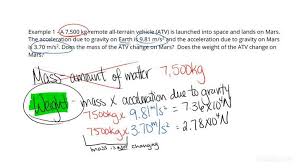 Example 1 - A 7,500 kg remote all-terrain vehicle (ATV) is launched into space and lands on Mars.
The acceleration due to gravity on Earth is 9.81 m/s² and the acceleration due to gravity on Mars
is 3.70 m/s². Does the mass of the ATV change on Mars? Does the weight of the ATV change on
Mars?
Mass - amount of matter 7,500kg
Weight - mass x acceleration due to gravity
7500kg x 9.81 m/s² = 7.36 x 10⁴ N
7500kg x 3.70 m/s² = 2.78 x 10⁴ N
mass is not changing